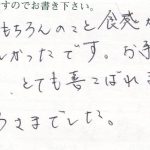 すのでお書き下さい。
もちろんのこと食感が
かったです。お手
、とても喜こばれま
うさまでした。